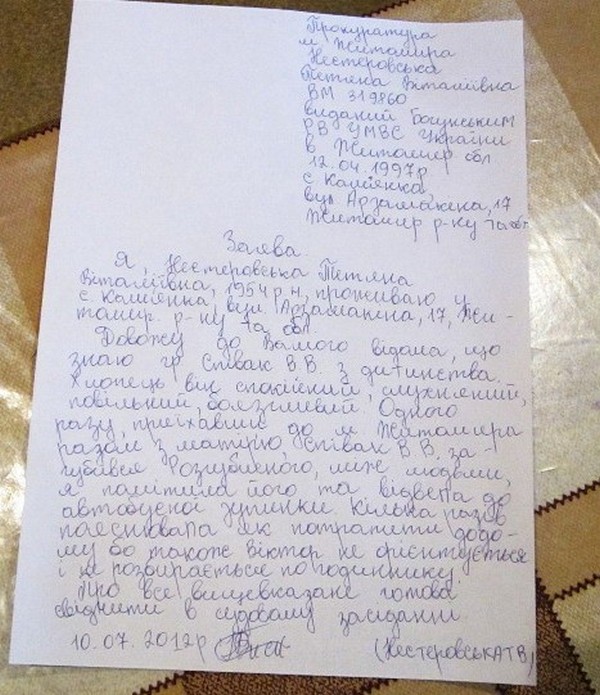 Прокуратура
м Житомира
Нестеровська
Тетяна Віталіївна
ВМ 319860
виданий Богунським
РВ УМВС України
в Житомир обл
12.04.1997р
с Кам'янка,
вул Арзамакіна, 17
Житомир р-ну та обл
Заява.
Я, Нестеровська Тетяна
Віталіївна, 1954 р.н, проживаю у
с. Кам'янка, вул. Арзамакіна, 17, Жи-
томир. р-ну та обл.
Довожу до Вашого відома, що
знаю гр Співак В.В. з дитинства.
Хлопець він спокійний, слухняний,
повільний, боязливий. Одного
разу, приїхавши до м Житомира
разом з матір'ю, Співак В.В. за-
губився Розгубленого, між людьми,
я помітила його та відвела до
автобусної зупинки кілька разів
пояснювала як потрапити додо-
му бо також Віктор не орієнтується
і не розбирається по годиннику.
Про все вищевказане готова
свідчити в судовому засіданні
10.07.2012р (Нестеровська ТВ)